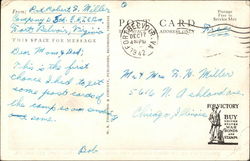 Pvt. Robert E. Miller
Company D
Fort Belvoir, Virginia
THIS SPACE FOR MESSAGE
Dear Mom & Dad,
This is the first
chance I had to get
some post cards of
the camp so am sending
Bob
POST CARD
ADDRESS ONLY
FORT BELVOIR, VA.
DEC 17
1942
Free
Mr & Mrs B. H. Miller
5616 N. Ashland Ave.
Chicago, Illinois
FOR VICTORY
BUY
UNITED
STATES
WAR
BONDS
AND
STAMPS